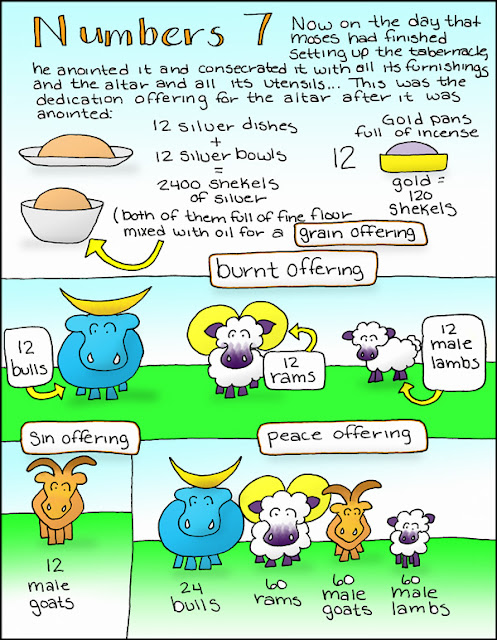 Numbers 7
Now on the day that
moses had finished
setting up the tabernacle,
he anointed it and consecrated it with all its furnishings
and the altar and all its utensils... This was the
dedication offering for the altar after it was
anointed:
12 silver dishes
+
12 silver bowls
=
2400 shekels
of silver
(both of them full of fine flour
mixed with oil for a grain offering
Gold pans
full of incense
12
gold =
120
shekels
burnt offering
12
bulls
12
rams
12
male
lambs
Sin offering
12
male
goats
peace offering
24
bulls
60
rams
60
male
goats
60
male
lambs